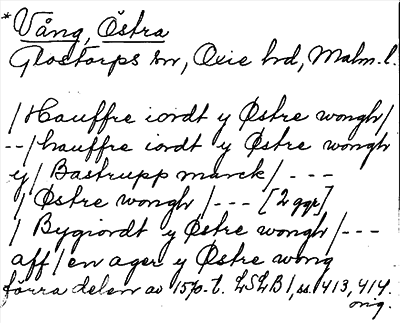 *Vång, Östra
Glostorps sn, Oxie hd, Malm. l.
/Hauffre iordt y Østre wongh/
--/hauffre iordt y Østre wongh
y/Bastrupp marck/ ---
/Østre wongh/--- [2 ggr]
/Bygiordt y Østre wongh/---
aff/en ager y Østre wong
förra delen av 1570-t. LSLB1, ss. 413, 414.
orig.